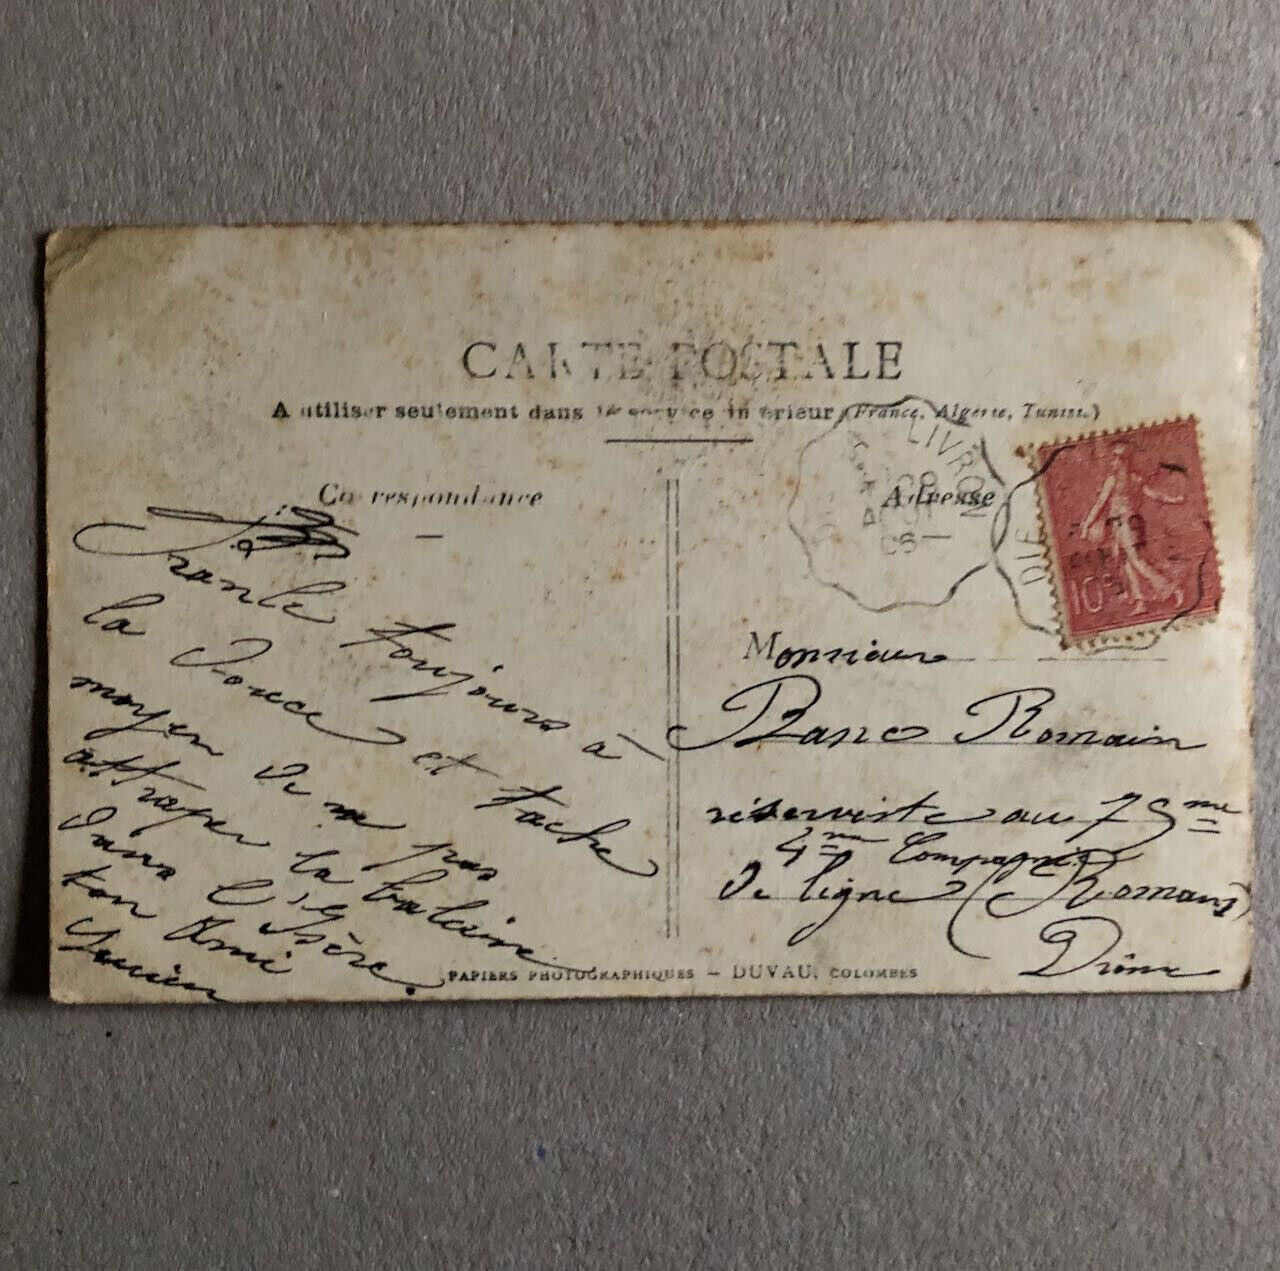 CARTE POSTALE
A utiliser seulement dans le service intérieur (France, Algérie, Tunisie.)
Correspondance
Adresse
LIVRON
DIE
10
toujours à
la Douce et tache
moyen de ne pas
attraper la baleine
dans l'Isère.
ton Ami
Lucien
Monsieur
Banc Romain
réserviste au 75me
4me Compagnie
de ligne (Romans)
Drôme
PAPIERS PHOTOGRAPHIQUES – DUVAU, COLOMBES